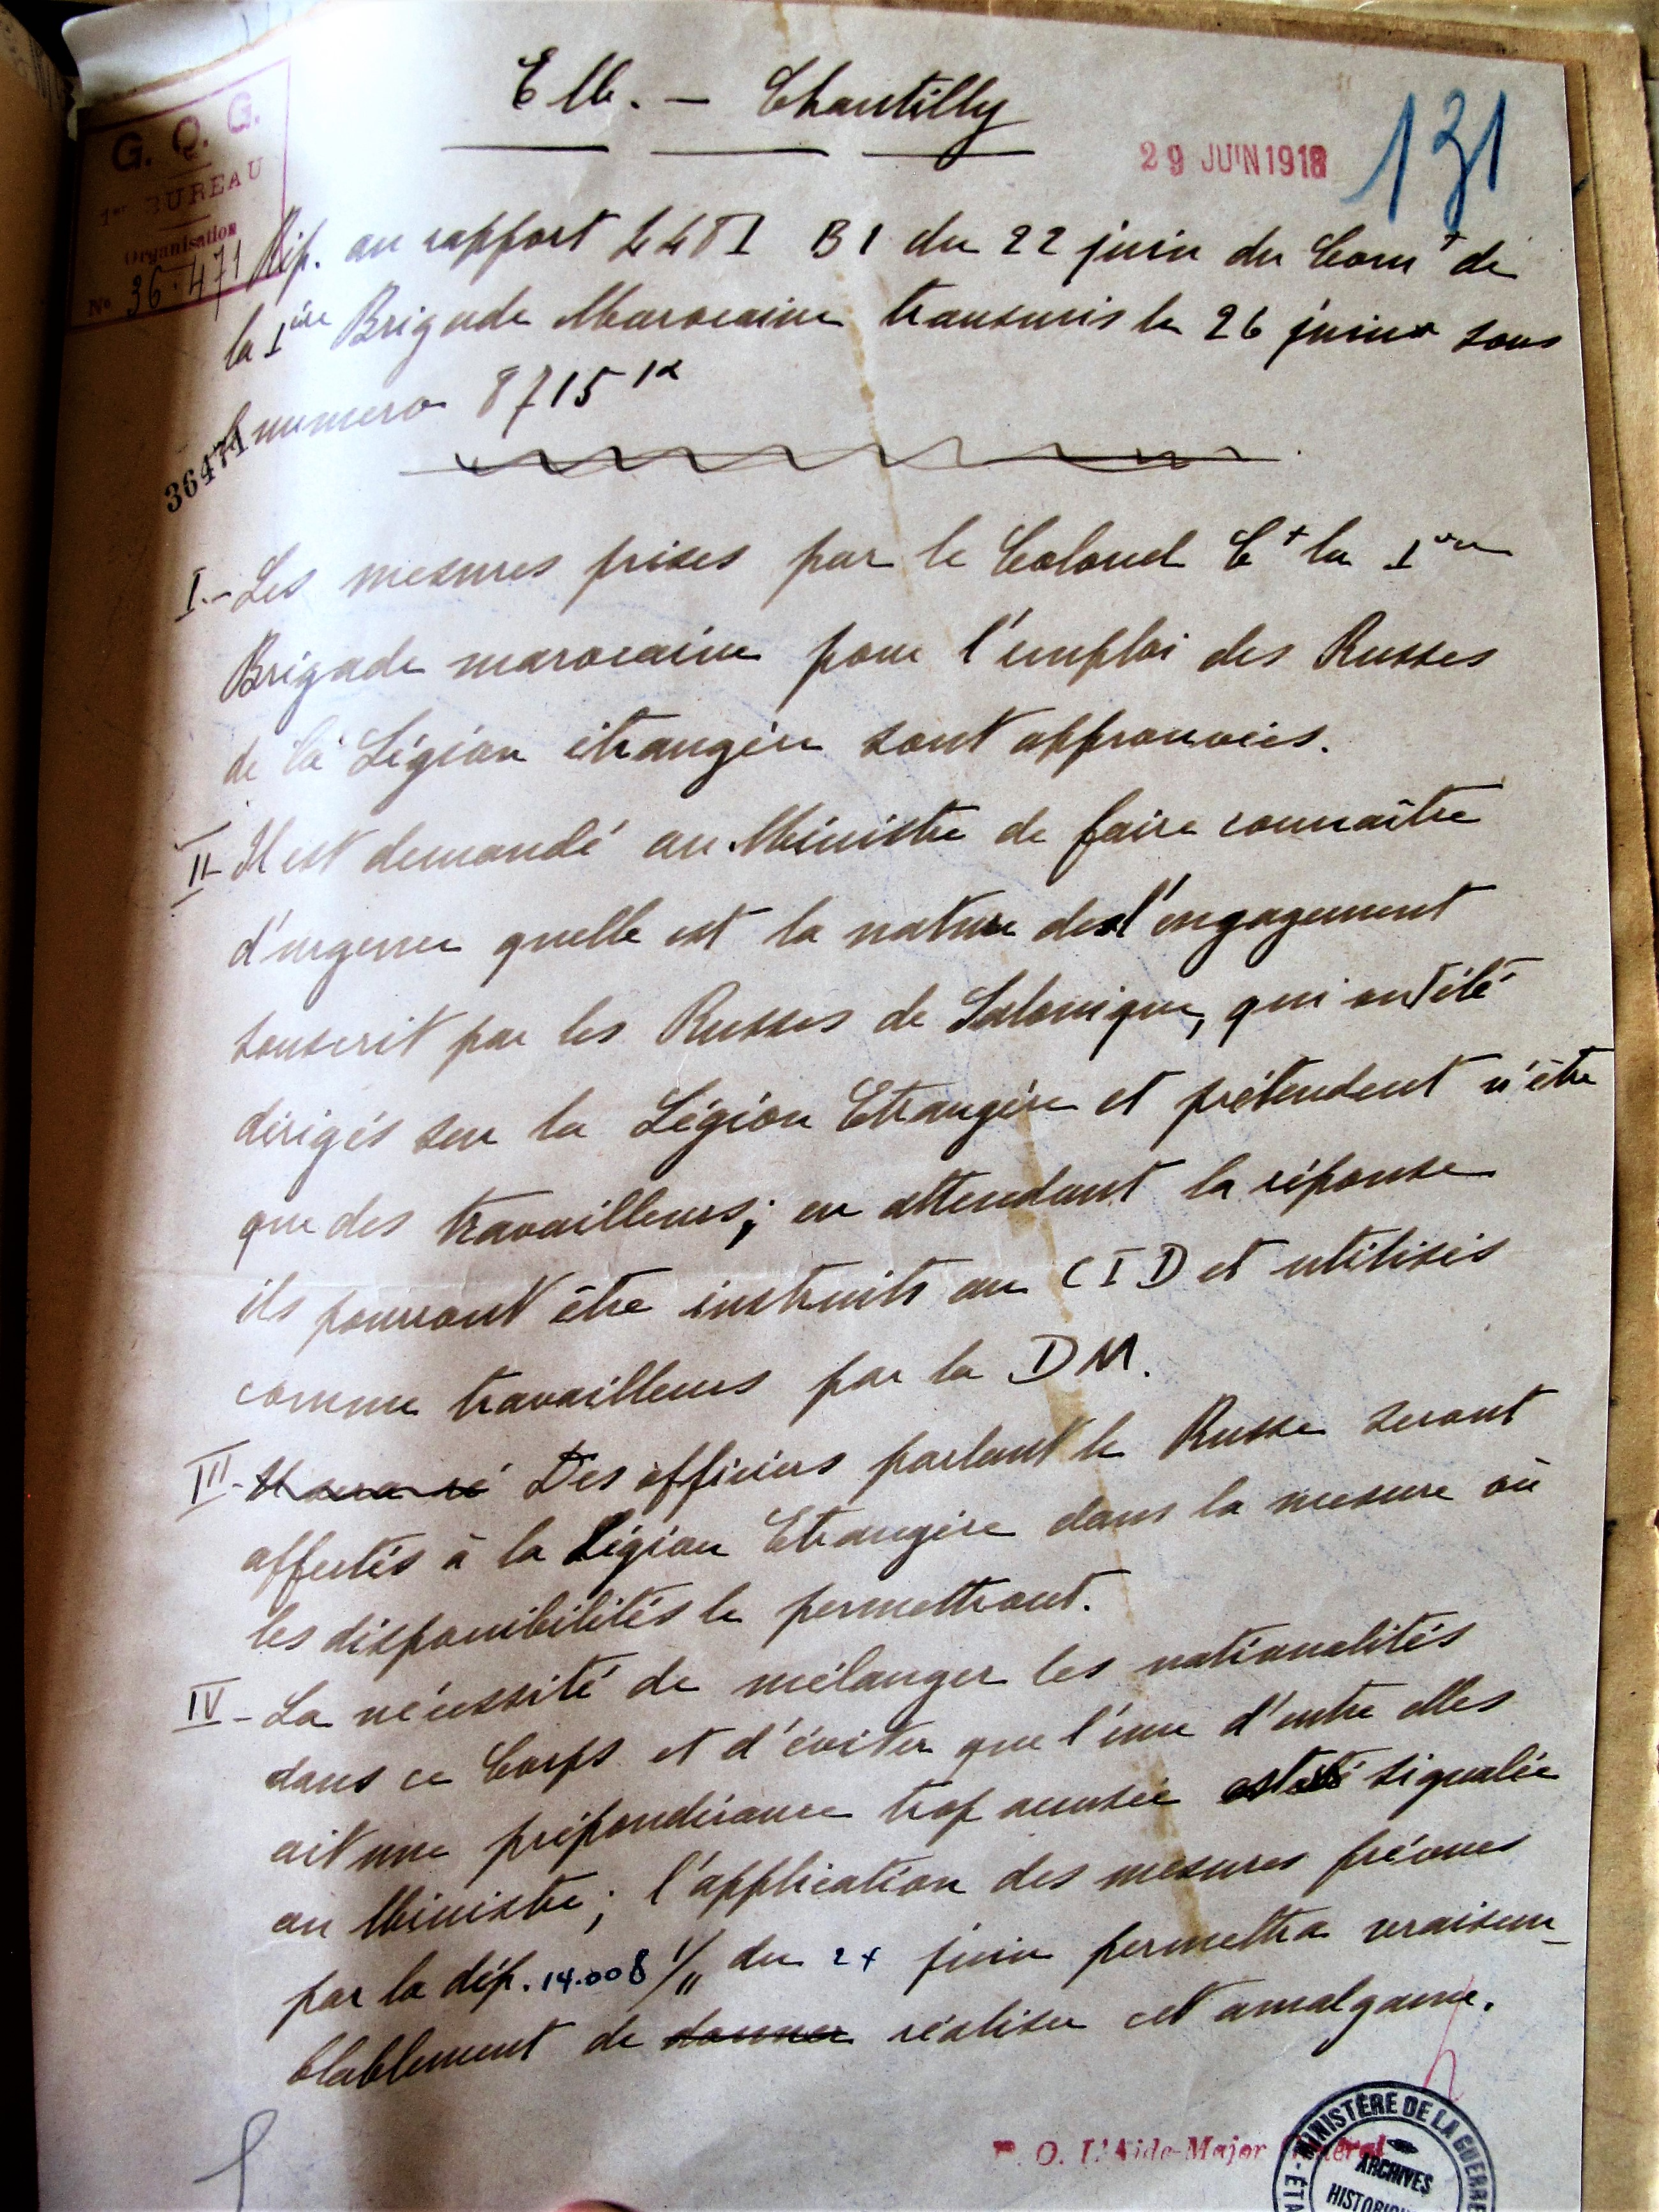 G. Q. G.
1er BUREAU
Organisation
No 36.471
EM. - Chantilly
29 JUIN 1918
131
Rép. au rapport B1 du 22 juin du Comt de
la 1ère Brigade Marocaine transmis le 26 juin sous
le numero 8715
36471
I.- Les mesures prises par le Colonel Ct la 1ère
Brigade marocaine pour l'emploi des Russes
de la Légion étrangère sont approuvées.
II- Il est demandé au Ministre de faire connaître
d'urgence quelle est la nature de l'engagement
souscrit par les Russes de Salonique, qui ont été
dirigés sur la Légion Etrangère et prétendent n'être
que des travailleurs; en attendant la réponse
ils pourront être instruits au CID et utilisés
comme travailleurs par la DM.
III- Des officiers parlant le Russe seront
affectés à la Légion Etrangère dans la mesure où
les disponibilités le permettront.
IV- La nécessité de mélanger les nationalités
dans ce Corps et d'éviter que l'une d'entre elles
ait une prépondérance trop accusée est signalée
au Ministre; l'application des mesures prévues
par la dép. 14.008 1/11 du juin permettra vraisem-
blablement de donner réaliser cet amalgame.
P. O. L'Aide-Major Général
MINISTÈRE DE LA GUERRE
ARCHIVES